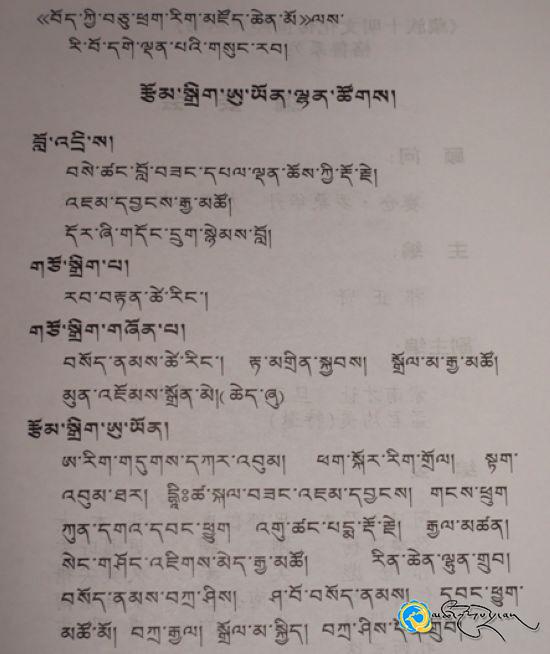 《བོད་ཀྱི་བཅུ་ཕྲག་རིག་མཛོད་ཆེན་མོ》ལས་
རི་བོ་དགེ་ལྡན་པའི་གསུང་རབ།
རྩོམ་སྒྲིག་ཨུ་ཡོན་ལྷན་ཚོགས།
བློ་འདྲི་ས།
བསེ་ཚང་བློ་བཟང་དཔལ་ལྡན་ཆོས་ཀྱི་རྡོ་རྗེ།
འཇམ་དབྱངས་རྒྱ་མཚོ།
དོར་ཞི་གདོང་དྲུག་སྙེམས་བློ།
གཙོ་སྒྲིག་པ།
རབ་བརྟན་ཚེ་རིང་།
གཙོ་སྒྲིག་གཞོན་པ།
བསོད་ནམས་ཚེ་རིང་། རྟ་མགྲིན་སྐྱབས། སྒྲོལ་མ་རྒྱ་མཚོ།
མུན་འཇོམས་སྒྲོན་མེ།(ཆེད་ཞུ)
རྩོམ་སྒྲིག་ཨུ་ཡོན།
ཨ་རིག་གདུགས་དཀར་འབུམ། ཕག་སྐོར་རིག་གྲོལ། སྟག་
འབུམ་ཐར། སྐལ་བཟང་འཇམ་དབྱངས། གངས་ཕྲུག
ཀུན་དགའ་དབང་ཕྱུག འགུ་ཚང་པདྨ་རྡོ་རྗེ། རྒྱལ་མཚན།
སེང་གཤོང་འཇིགས་མེད་རྒྱ་མཚོ། རིན་ཆེན་ལྷུན་གྲུབ།
བསོད་ནམས་བཀྲ་ཤིས། ཤ་བོ་བསོད་ནམས། དབང་ཕྱུག་
མཚོ་མོ། བཀྲ་རྒྱལ། སྒྲོལ་མ་སྐྱིད། བཀྲ་ཤིས་དོན་གྲུབ།